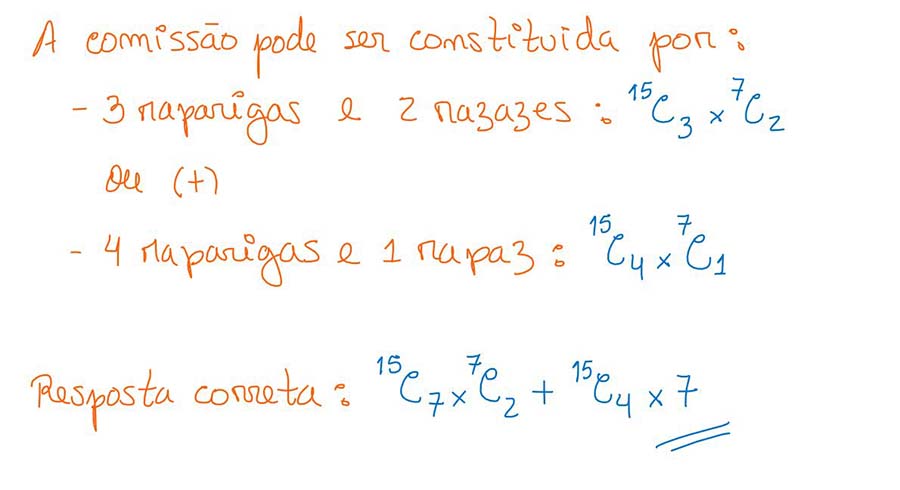 A comissão pode ser constituida por:
- 3 raparigas e 2 razazes: ¹⁵C₃ × ⁷C₂
ou (+)
- 4 raparigas e 1 rapaz: ¹⁵C₄ × ⁷C₁
Resposta correta: ¹⁵C₇ × ⁷C₂ + ¹⁵C₄ × 7